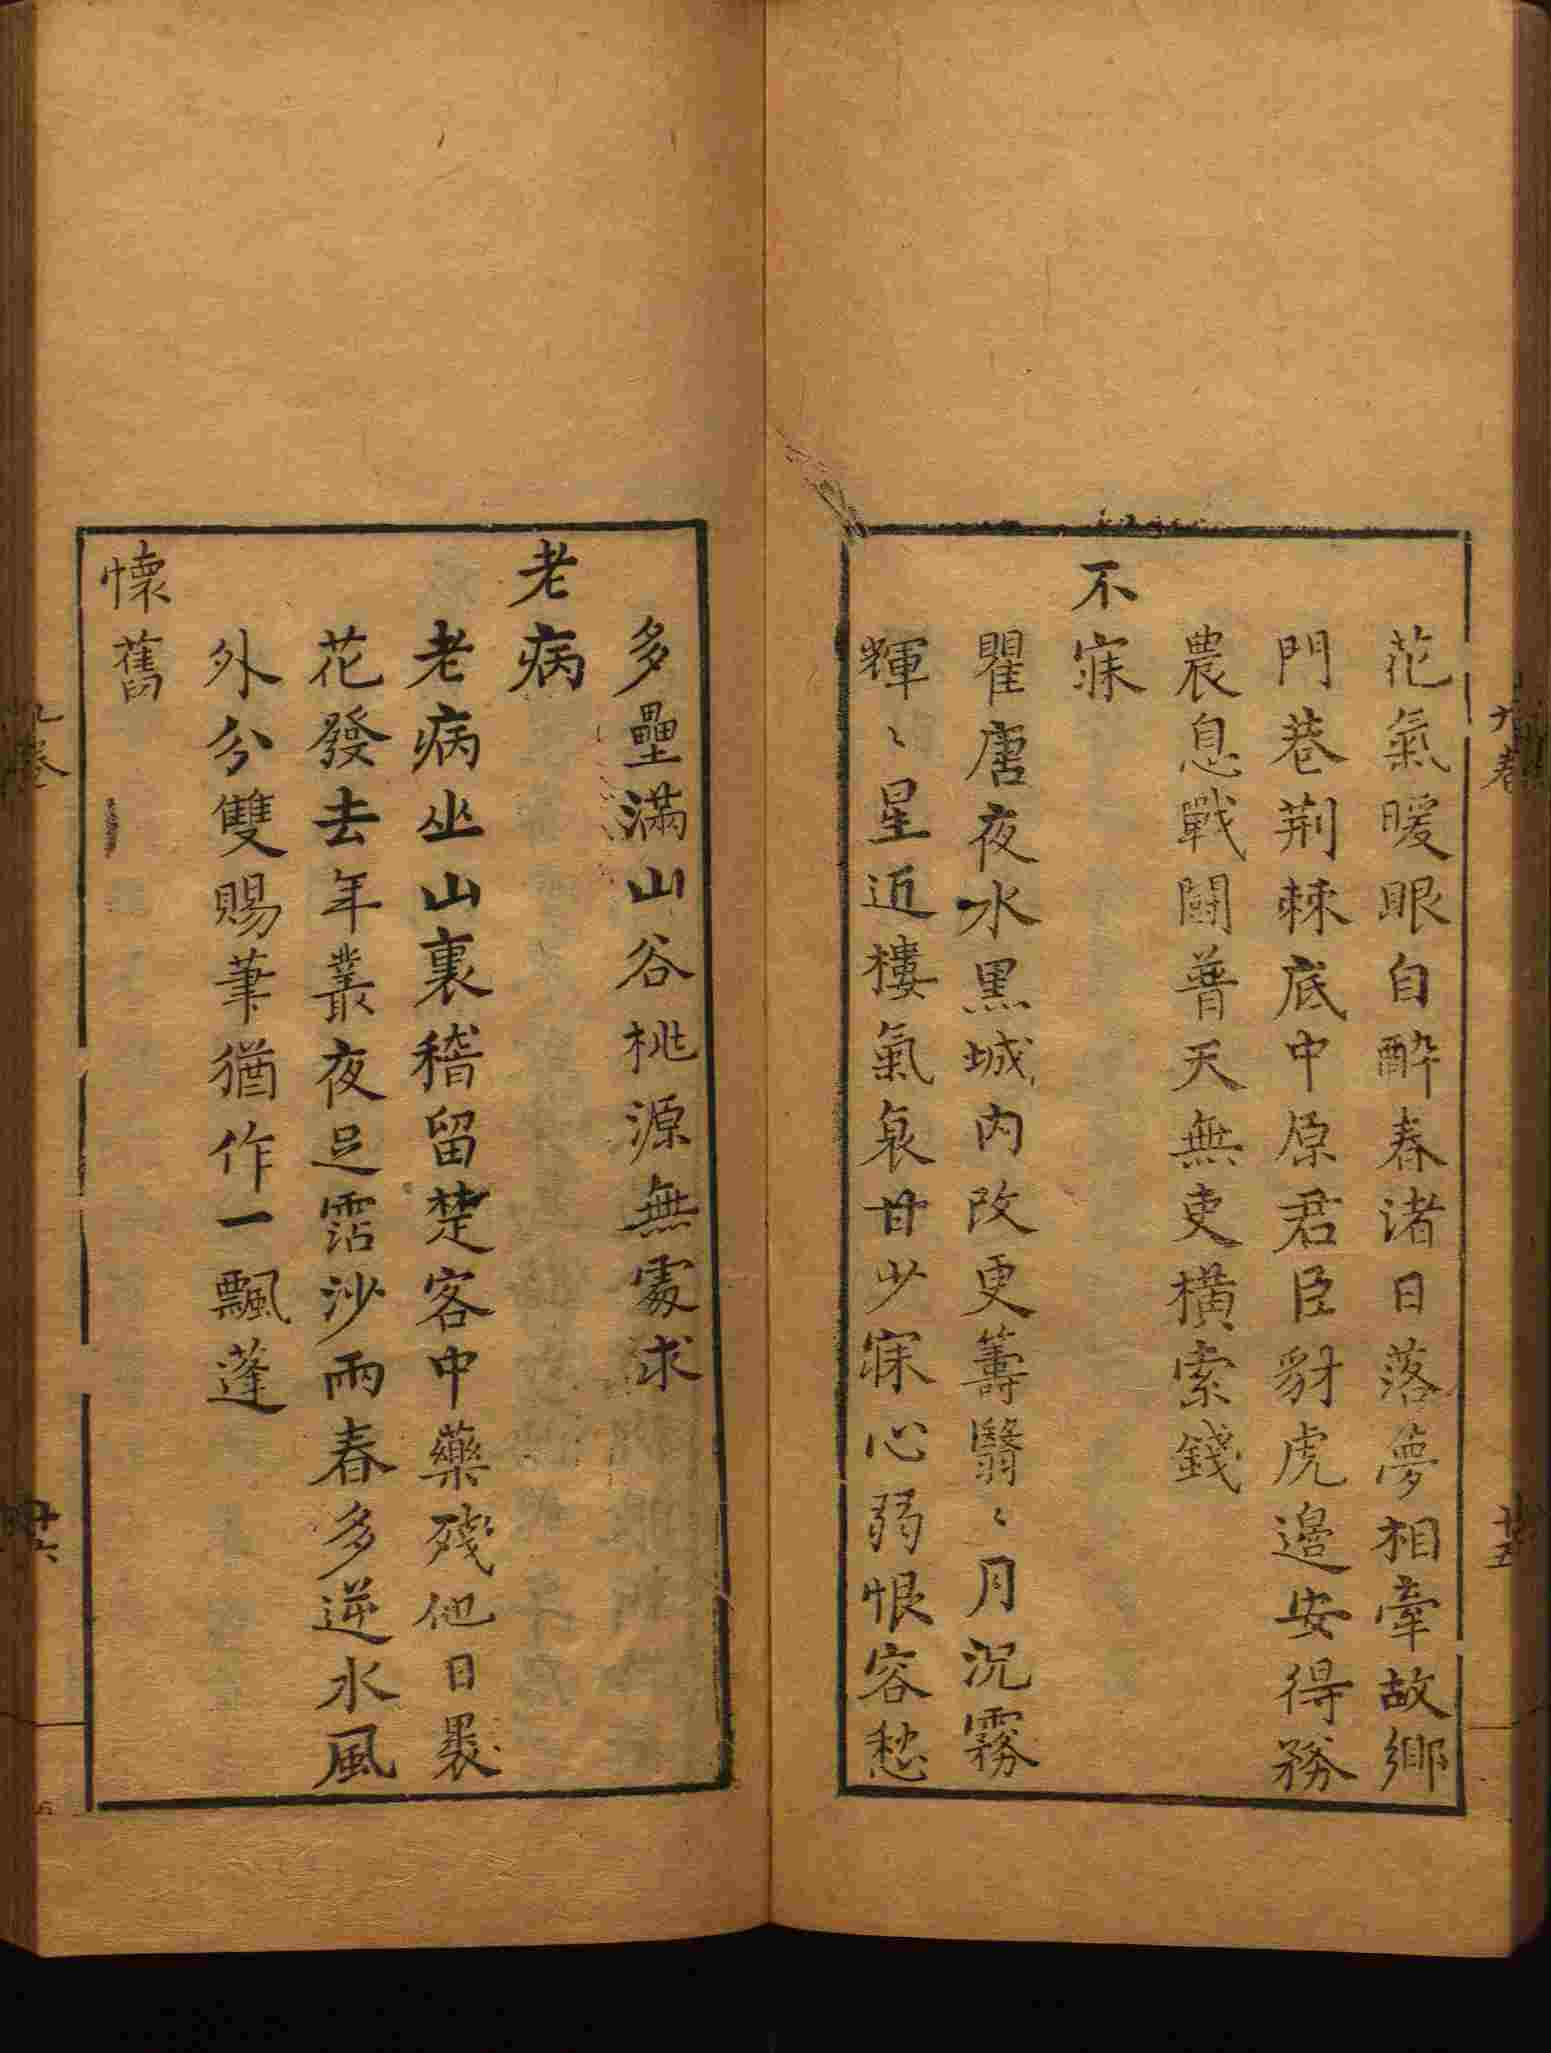 花氣暖眼自醉春渚日落夢相牽故鄉
門巷荆棘底中原君臣豺虎邊安得務
農息戰鬭普天無吏橫索錢
不寐
瞿唐夜水黑城内改更籌翳〻月沉霧
輝〻星近樓氣衰甘少寐心弱恨容愁
多壘滿山谷桃源無處求
老病
老病坐山裏稽留楚客中藥殘他日裹
花發去年叢夜足霑沙雨春多逆水風
外兮雙賜筆猶作一飄蓬
懷舊